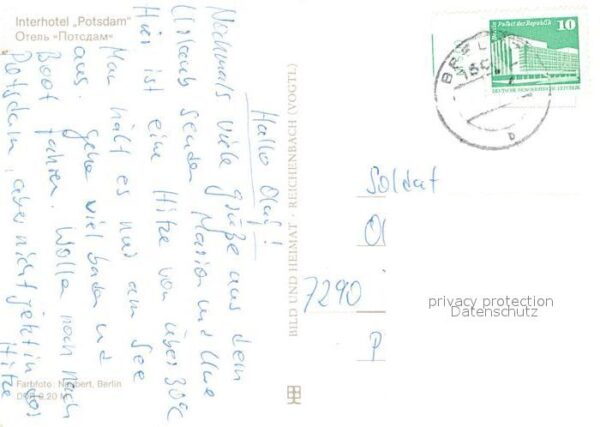 Interhotel „Potsdam"
Отель «Потсдам»
Hallo Olaf!
Nochmals viele Grüße aus dem
Urlaub senden Marion und Uwe
Hier ist eine Hitze von über 30°C
Man hält es nur am See
aus. gehe viel baden und
Boot fahren. Wollen noch nach
Potsdam, aber nicht geht in das
Hitze
Farbfoto: Neubert, Berlin
BILD UND HEIMAT · REICHENBACH (VOGTL)
Berlin Palast der Republik 10
DEUTSCHE DEMOKRATISCHE REPUBLIK
Soldat
Ol
7290
P
privacy protection
Datenschutz